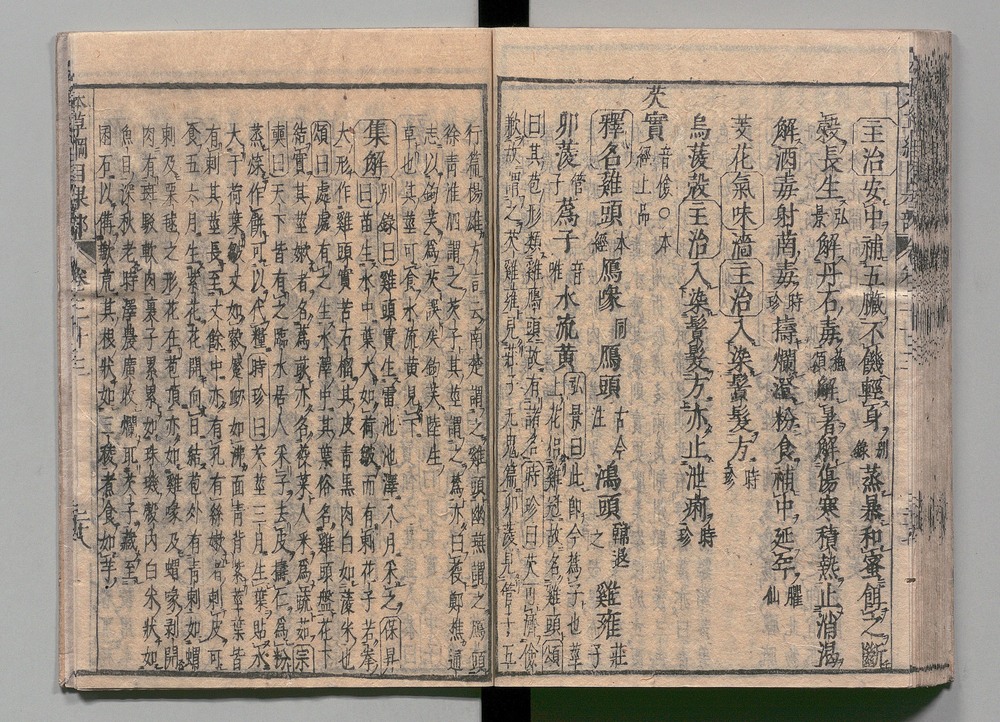 主治安中補五臟不飢輕身別錄蒸暴和蜜餌之斷
穀長生弘景解丹石毒蘇頌解暑解傷寒積熱止消渴
解酒毒射菵毒時珍擣爛澄粉食補中延年臞仙
芰花氣味濇主治入染鬚髮方時珍
烏菱殼主治入染鬚髮方亦止泄痢時珍
芡實音儉○本經上品
釋名雞頭本經鴈喙同鴈頭古今注鴻頭韓退之雞雍莊子
卯菱管子蔿子音唯水流黃弘景曰此即今蔿子也莖
上花似雞冠故名雞頭頌
曰其苞形類雞鴈頭故有諸名時珍曰芡可濟儉
歉故謂之芡雞雍見莊子無鬼篇卯菱見管子五
行篇揚雄方言云南楚謂之雞頭幽燕謂之鴈頭
徐青淮泗謂之芡子其莖謂之蔿亦曰䓈鄭樵通
志以鉤芺爲芡誤矣鉤芺陸生
草也其莖可食水流黃見下
集解別錄曰雞頭實生雷池池澤八月采之保昇
曰苗生水中葉大如荷皺而有刺花子若拳
大形作雞頭實若石榴其皮青黑肉白如菱米也
頌曰處處有之生水澤中其葉俗名雞頭盤花下
結實其莖嫩者名蔿䓈亦名䓈菜人采爲蔬茹宗
奭曰天下皆有之臨水居人采子去皮擣仁爲粉
蒸煠作餅可以代糧時珍曰芡莖三月生葉貼水
大于荷葉皺文如縠蹙衄如沸面青背紫莖葉皆
有刺其莖長至丈餘中亦有孔有絲嫩者剝皮可
食五六月生紫花花開向日結苞外有青刺如蝟
刺及栗毬之形花在苞頂亦如雞喙及蝟喙剝開
內有斑駁軟肉裹子累累如珠璣殼內白米狀如
魚目深秋老時澤農廣收爛取芡子藏至
囷石以備歉荒其根狀如三稜煮食如芋
本草綱目果部
卷之三十三